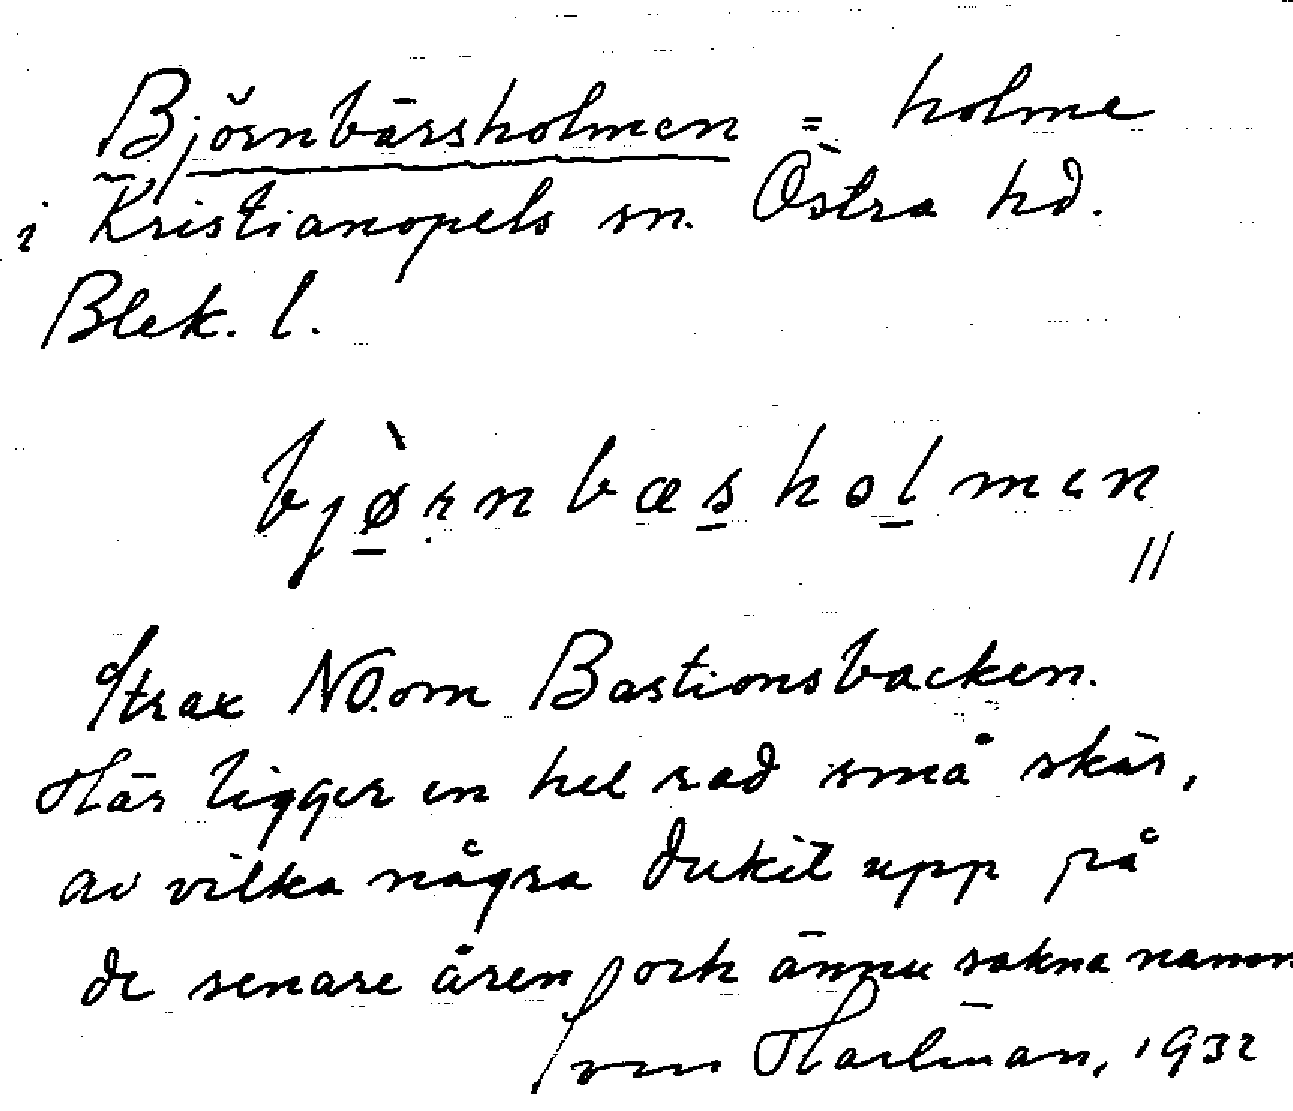 Björnbärsholmen = holme
i Kristianopels sn. Östra hd.
Blek. l.
bjø̀rnbæsholmen
Strax NO.om Bastionsbacken.
Här ligger en hel rad små skär,
av vilka några dukit upp på
de senare åren och ännu sakna namn
Sven Harlman, 1932